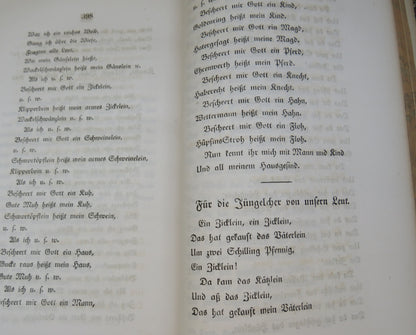 398
Was ich ein reiches Weib,
Gung ich über die Wiese,
Fragten alle Leut,
Wie mein Gänslein hieß,
Wackelschwänzlein heißt mein Gänslein u.
Als ich u. s. w.
Bescheert mir Gott ein Zicklein,
u. s. w.
Klipperbein heißt mein armes Zicklein,
Wackelschwänzlein u. s. w.
Als ich u. s. w.
Bescheert mir Gott ein Schweinelein,
u. s. w.
Schmortöpflein heißt mein armes Schweinelein,
Klipperbein u. s. w.
Als ich u. s. w.
Bescheert mir Gott ein Kuh,
Gute Muh heißt meine Kuh,
Schmortöpflein heißt mein Schwein,
u. s. w.
Als ich u. s. w.
Bescheert mir Gott ein Haus,
Guck raus heißt mein Haus,
Gute Muh u. s. w.
Als ich u. s. w.
Bescheert mir Gott ein Mann,
Bescheert mir Gott ein Kind,
Goldenring heißt mein Kind,
Bescheert mir Gott eine Magd,
Hatergesagt heißt meine Magd,
Bescheert mir Gott ein Pferd,
Ehrenwerth heißt mein Pferd.
Bescheert mir Gott ein Knecht,
Haberecht heißt mein Knecht,
Bescheert mir Gott ein Hahn,
Wettermann heißt mein Hahn,
Bescheert mir Gott ein Floh,
HüpfinsStroh heißt mein Floh.
Nun kennt ihr mich mit Mann und Kind
Und all meinem Hausgesind.
Für die Jüngelcher von unsern Leut.
Ein Zicklein, ein Zicklein,
Das hat gekauft das Väterlein
Um zwei Schilling Pfennig,
Ein Zicklein!
Da kam das Kätzlein
Und aß das Zicklein,
Das hat gekauft mein Väterlein